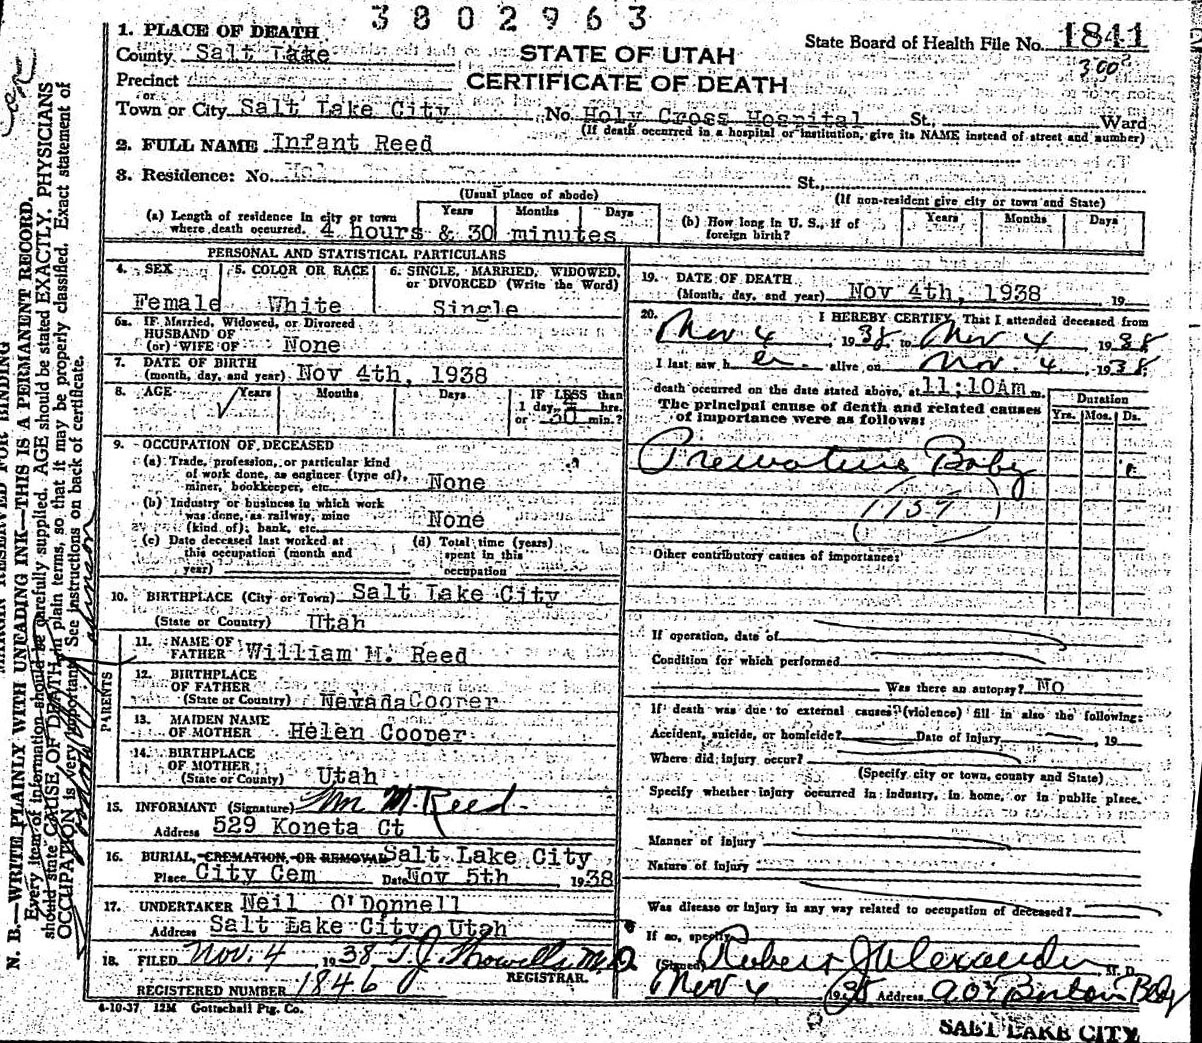 3802963
1. PLACE OF DEATH
County Salt Lake
STATE OF UTAH
State Board of Health File No. 1841
Precinct
CERTIFICATE OF DEATH
300²
or
Town or City Salt Lake City No. Holy Cross Hospital St., Ward
(If death occurred in a hospital or institution, give its NAME instead of street and number)
2. FULL NAME Infant Reed
3. Residence: No. St.,
(Usual place of abode) (If non-resident give city or town and State)
(a) Length of residence in city or town where death occurred. 4 hours & 30 minutes
Years Months Days
(b) How long in U. S., if of foreign birth?
Years Months Days
PERSONAL AND STATISTICAL PARTICULARS
4. SEX 5. COLOR OR RACE 6. SINGLE, MARRIED, WIDOWED, or DIVORCED (Write the Word)
Female White Single
6a. IF Married, Widowed, or Divorced
HUSBAND OF
(or) WIFE OF None
7. DATE OF BIRTH
(month, day, and year) Nov 4th, 1938
8. AGE Years Months Days IF LESS than
1 day, 4 hrs.
or 30 min.?
9. OCCUPATION OF DECEASED
(a) Trade, profession, or particular kind
of work done, as engineer (type of),
miner, bookkeeper, etc. None
(b) Industry or business in which work
was done, as railway, mine
(kind of); bank, etc. None
(c) Date deceased last worked at
this occupation (month and
year)
(d) Total time (years)
spent in this
occupation
10. BIRTHPLACE (City or Town) Salt Lake City
(State or Country) Utah
PARENTS
11. NAME OF
FATHER William M. Reed
12. BIRTHPLACE
OF FATHER
(State or Country) Nevada Cooper
13. MAIDEN NAME
OF MOTHER Helen Cooper
14. BIRTHPLACE
OF MOTHER
(State or County) Utah
15. INFORMANT (Signature) Wm M. Reed
Address 529 Koneta Ct
16. BURIAL, CREMATION, OR REMOVAL Salt Lake City
Place City Cem Date Nov 5th 1938
17. UNDERTAKER Neil O'Donnell
Address Salt Lake City, Utah
18. FILED Nov. 4, 1938 T. J. Howells M.D.
REGISTRAR.
REGISTERED NUMBER 1846
4-10-37 12M Gottschall Ptg. Co.
19. DATE OF DEATH
(Month, day, and year) Nov 4th, 1938 19
20. I HEREBY CERTIFY, That I attended deceased from
Nov 4, 1938, to Nov 4, 1938
I last saw h er alive on Nov. 4, 1938.
death occurred on the date stated above, at 11:10Am m.
The principal cause of death and related causes
of importance were as follows:
Duration
Yrs. Mos. Ds.
Premature Baby
(159)
Other contributory causes of importance:
If operation, date of
Condition for which performed
Was there an autopsy? No
If death was due to external causes (violence) fill in also the following:
Accident, suicide, or homicide? Date of injury , 19
Where did injury occur?
(Specify city or town, county and State)
Specify whether injury occurred in industry, in home, or in public place.
Manner of injury
Nature of injury
Was disease or injury in any way related to occupation of deceased?
If so, specify
(Signed) Robert J Alexander M. D.
Nov 4 1938 Address 904 Boston Bldg
SALT LAKE CITY
MARGIN RESERVED FOR BINDING
N. B.—WRITE PLAINLY WITH UNFADING INK—THIS IS A PERMANENT RECORD.
Every item of information should be carefully supplied. AGE should be stated EXACTLY. PHYSICIANS
should state CAUSE OF DEATH in plain terms, so that it may be properly classified. Exact statement of
OCCUPATION is very important. See instructions on back of certificate.